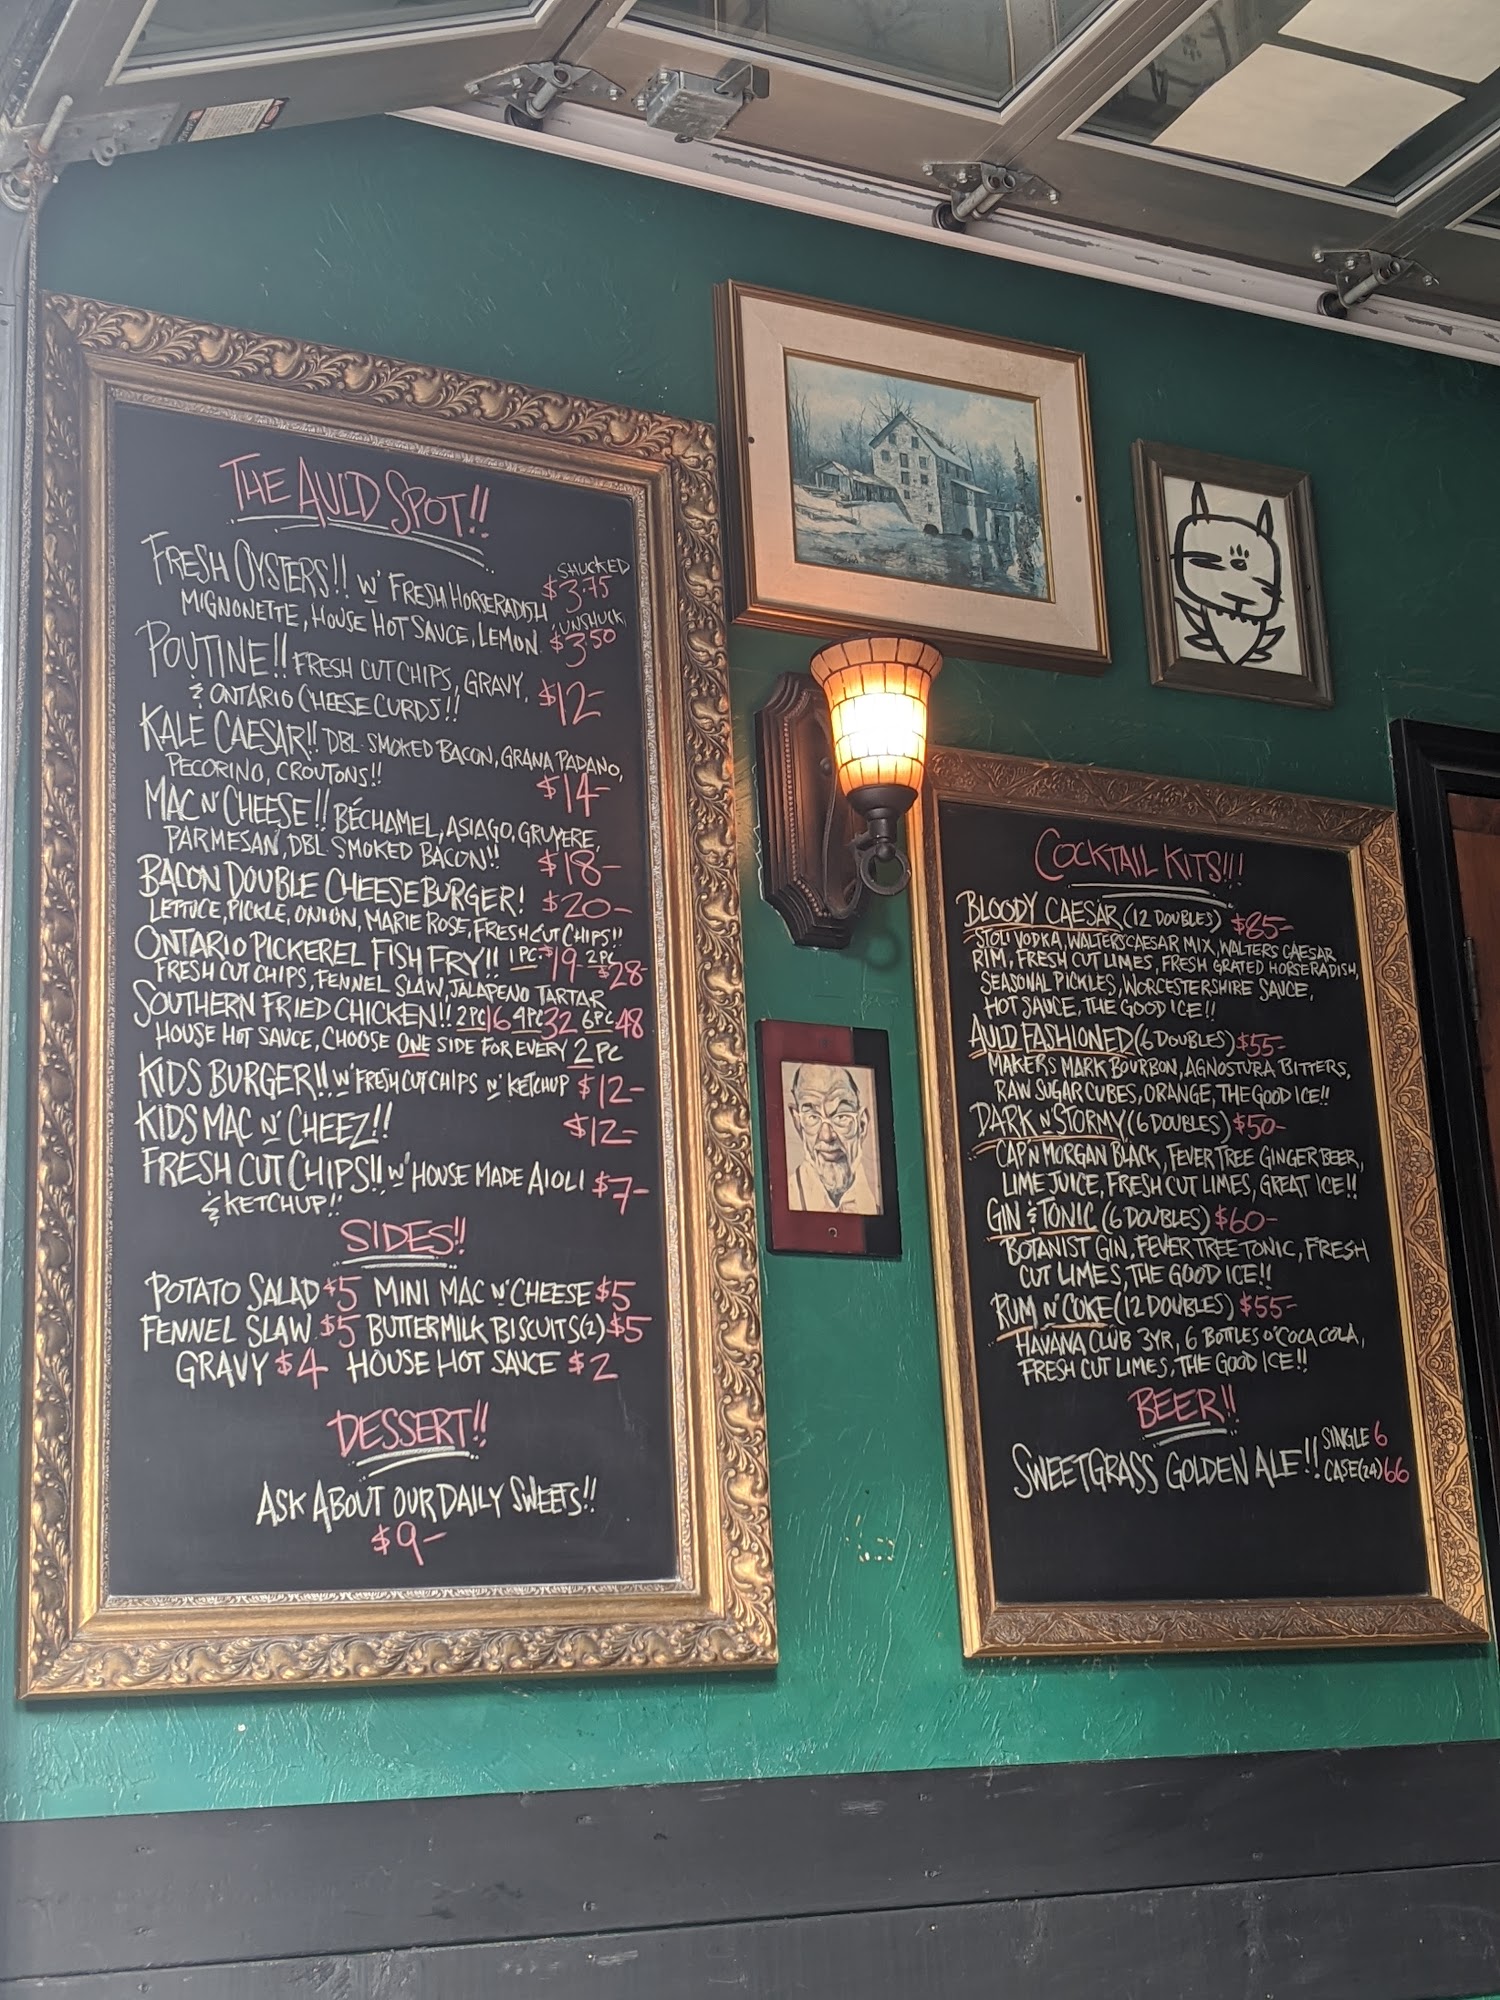 THE AULD SPOT!!
FRESH OYSTERS!! W/ FRESH HORSERADISH SHUCKED $3.75
MIGNONETTE, HOUSE HOT SAUCE, LEMON UNSHUCK $3.50
POUTINE!! FRESH CUT CHIPS, GRAVY,
& ONTARIO CHEESE CURDS!! $12-
KALE CAESAR!! DBL SMOKED BACON, GRANA PADANO,
PECORINO, CROUTONS!! $14-
MAC N' CHEESE!! BÉCHAMEL, ASIAGO, GRUYERE,
PARMESAN, DBL SMOKED BACON!! $18-
BACON DOUBLE CHEESEBURGER! $20-
LETTUCE, PICKLE, ONION, MARIE ROSE, FRESH CUT CHIPS!!
ONTARIO PICKEREL FISH FRY!! 1 PC $19- 2 PC $28-
FRESH CUT CHIPS, FENNEL SLAW, JALAPENO TARTAR
SOUTHERN FRIED CHICKEN!! 2PC 16 4PC 32 6PC 48
HOUSE HOT SAUCE, CHOOSE ONE SIDE FOR EVERY 2 PC
KIDS BURGER!! W/ FRESH CUT CHIPS N' KETCHUP $12-
KIDS MAC N' CHEEZ!! $12-
FRESH CUT CHIPS!! W/ HOUSE MADE AIOLI $7-
& KETCHUP!!
SIDES!!
POTATO SALAD $5 MINI MAC N' CHEESE $5
FENNEL SLAW $5 BUTTERMILK BISCUITS(2) $5
GRAVY $4 HOUSE HOT SAUCE $2
DESSERT!!
ASK ABOUT OUR DAILY SWEETS!!
$9-
COCKTAIL KITS!!!
BLOODY CAESAR (12 DOUBLES) $85-
STOLI VODKA, WALTERS CAESAR MIX, WALTERS CAESAR
RIM, FRESH CUT LIMES, FRESH GRATED HORSERADISH,
SEASONAL PICKLES, WORCESTERSHIRE SAUCE,
HOT SAUCE, THE GOOD ICE!!
AULD FASHIONED (6 DOUBLES) $55-
MAKERS MARK BOURBON, AGNOSTURA BITTERS,
RAW SUGAR CUBES, ORANGE, THE GOOD ICE!!
DARK N' STORMY (6 DOUBLES) $50-
CAP'N MORGAN BLACK, FEVER TREE GINGER BEER,
LIME JUICE, FRESH CUT LIMES, GREAT ICE!!
GIN & TONIC (6 DOUBLES) $60-
BOTANIST GIN, FEVER TREE TONIC, FRESH
CUT LIMES, THE GOOD ICE!!
RUM N' COKE (12 DOUBLES) $55-
HAVANA CLUB 3YR, 6 BOTTLES O' COCA COLA,
FRESH CUT LIMES, THE GOOD ICE!!
BEER!!
SWEETGRASS GOLDEN ALE!! SINGLE 6
CASE (24) 66